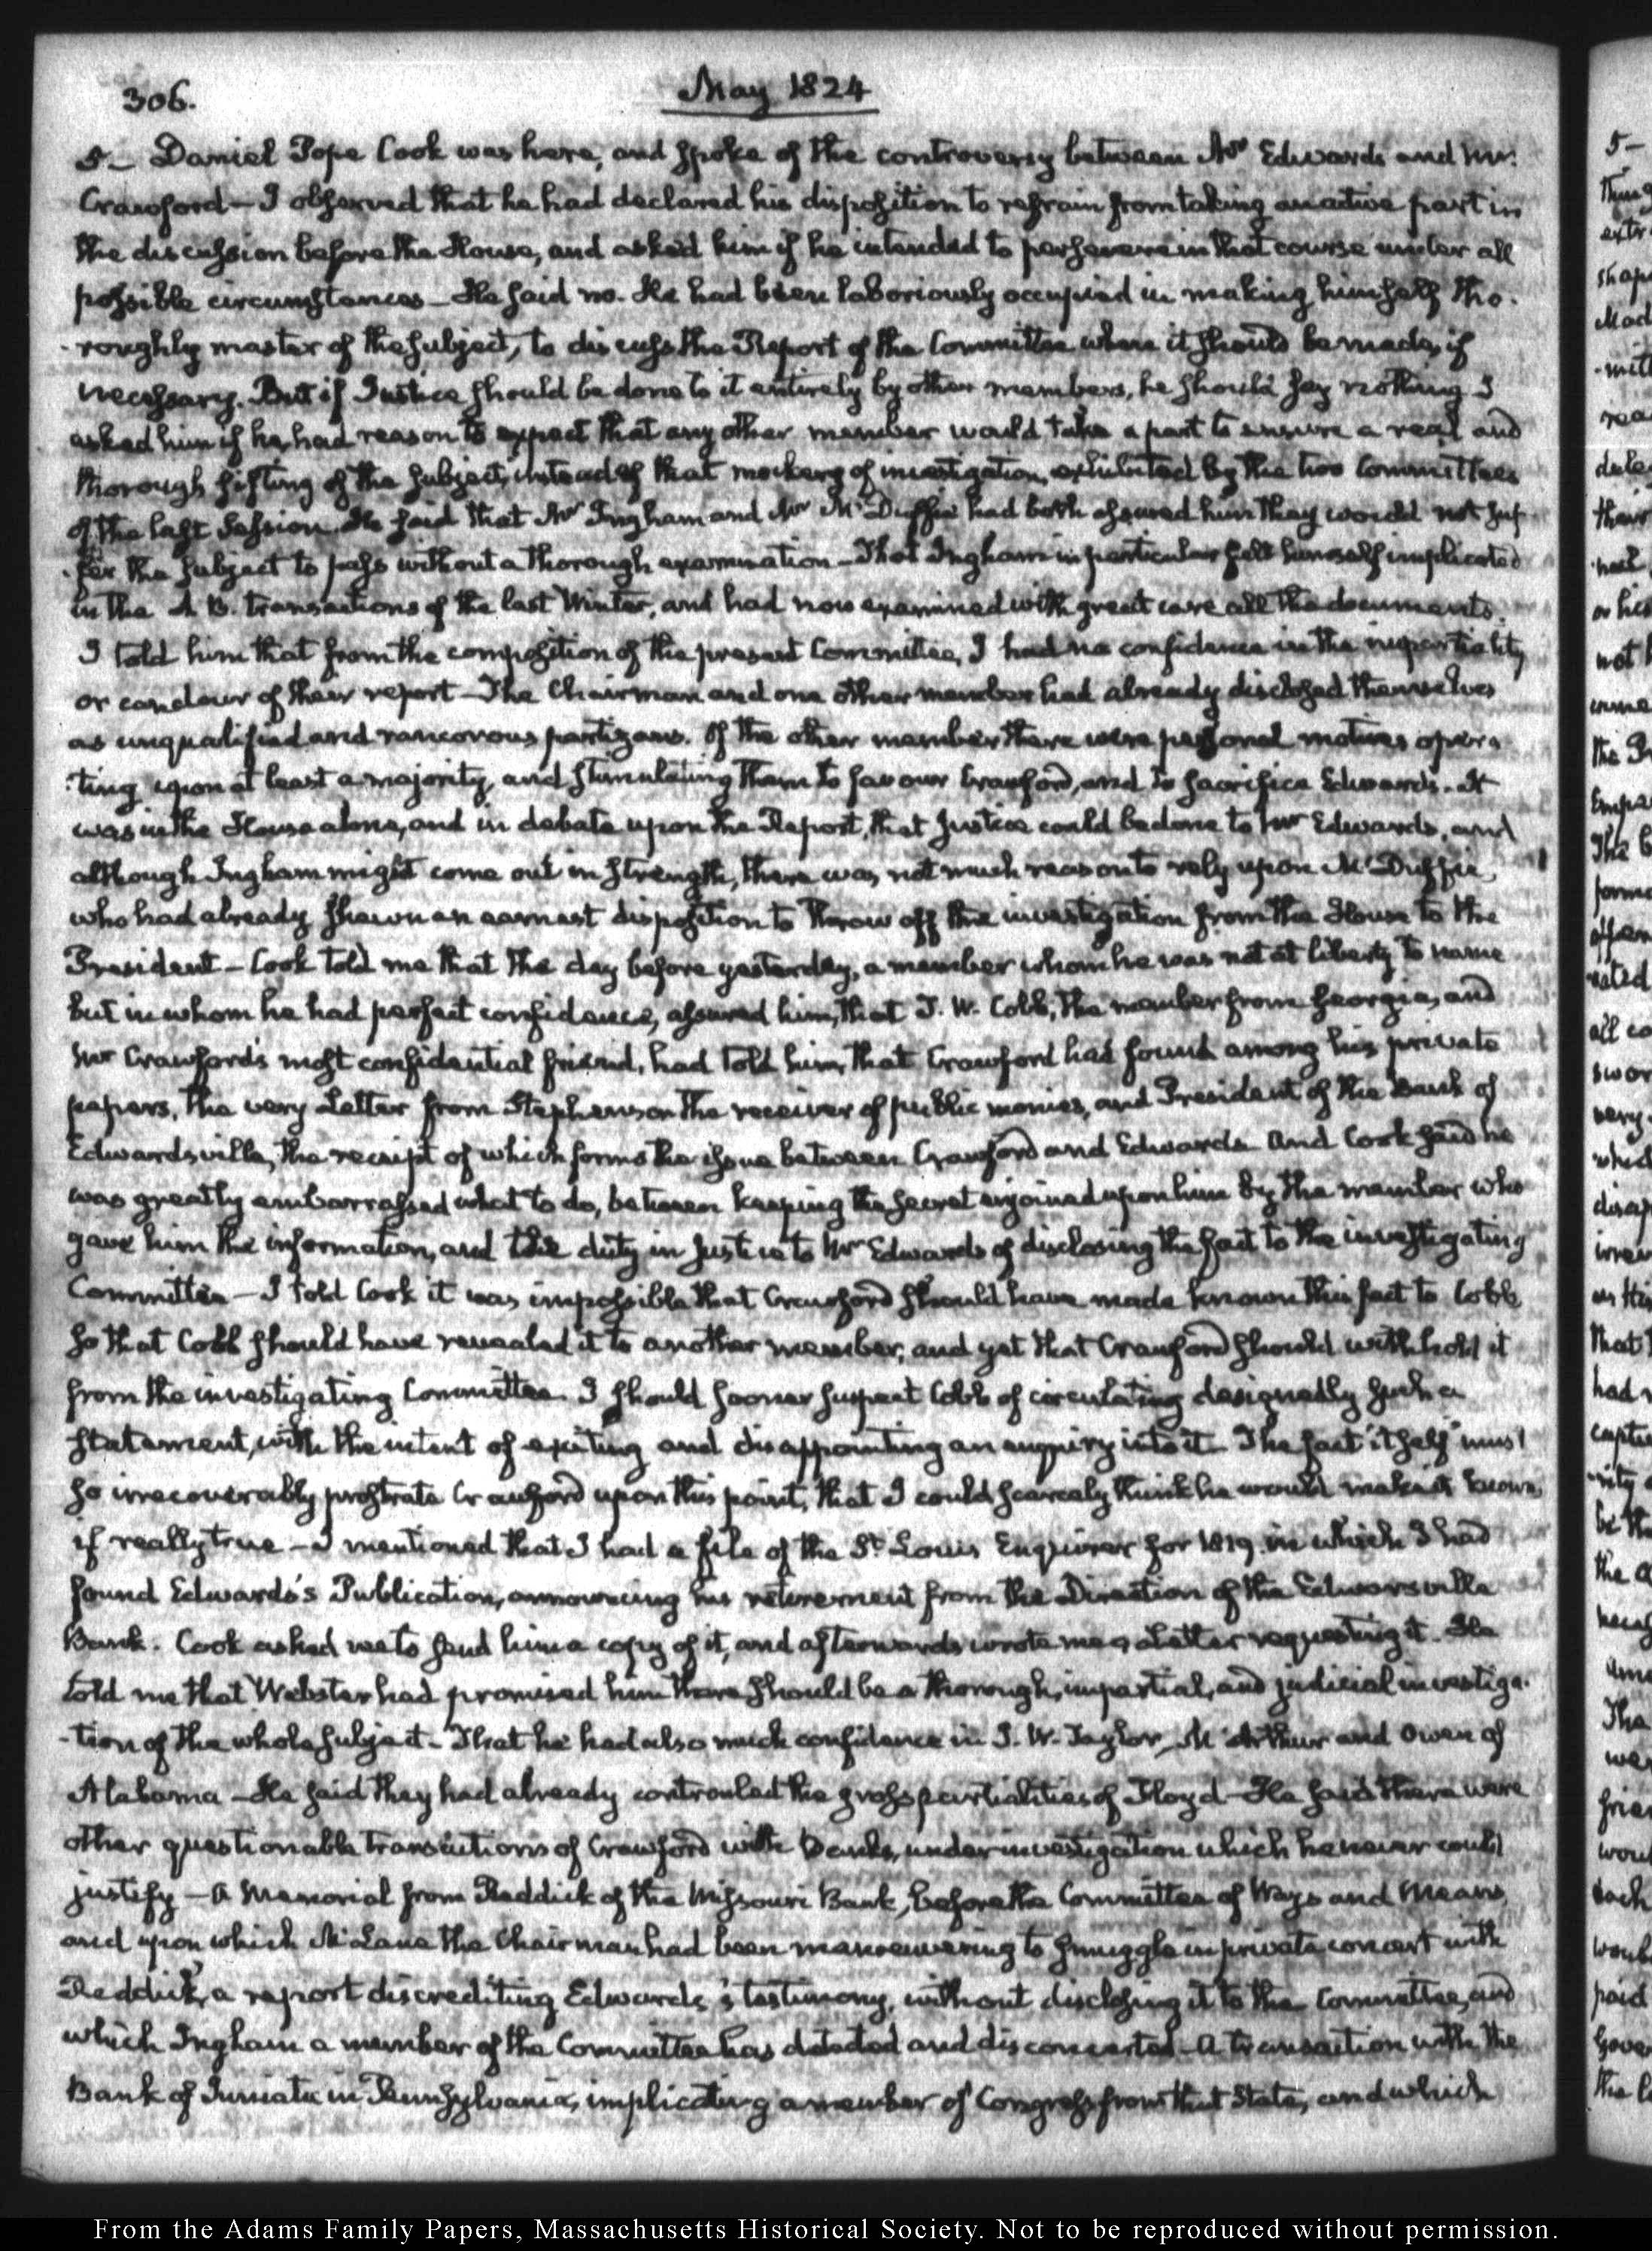 306.
May 1824
5— Daniel Pope Cook was here, and spoke of the controversy between Mr Edwards and Mr
Crawford — I observed that he had declared his disposition to refrain from taking an active part in
the discussion before the House, and asked him if he intended to persevere in that course under all
possible circumstances — He said no. He had been laboriously occupied in making himself tho-
-roughly master of the subject, to discuss the Report of the Committee when it should be made, if
necessary. But if Justice should be done to it entirely by other members, he should say nothing. I
asked him if he had reason to expect that any other member would take a part to ensure a real and
thorough sifting of the subject, instead of that mockery of investigation, exhibited by the two Committees
of the last Session. He said that Mr Ingham and Mr McDuffie had both assured him they would not suf-
-fer the subject to pass without a thorough examination — That Ingham in particular felt himself implicated
in the A. B. transactions of the last Winter, and had now examined with great care all the documents.
I told him that from the composition of the present Committee, I had no confidence in the impartiality
or candour of their report — The Chairman and one other member had already disclosed themselves
as unqualified and rancorous partizans. Of the other member there were personal motives opera-
-ting upon at least a majority, and stimulating them to favour Crawford, and to sacrifice Edwards. It
was in the House alone, and in debate upon the Report, that Justice could be done to Mr Edwards, and
although Ingham might come out in strength, there was not much reason to rely upon McDuffie,
who had already shewn an earnest disposition to throw off the investigation from the House to the
President — Cook told me that the day before yesterday, a member whom he was not at liberty to name
but in whom he had perfect confidence, assured him, that T. W. Cobb, the member from Georgia, and
Mr Crawford's most confidential friend, had told him, that Crawford had found among his private
papers, the very Letter from Stephenson the receiver of public monies, and President of the Bank of
Edwardsville, the receipt of which forms the issue between Crawford and Edwards and Cook said he
was greatly embarrassed what to do, between keeping the secret enjoined upon him by the member who
gave him the information, and the duty in Justice to Mr Edwards of disclosing the fact to the investigating
Committee — I told Cook it was impossible that Crawford should have made known this fact to Cobb
so that Cobb should have revealed it to another member, and yet that Crawford should withhold it
from the investigating Committee. I should sooner suspect Cobb of circulating designedly such a
statement, with the intent of exciting and disappointing an enquiry into it. The fact itself must
so irrecoverably prostrate Crawford upon this point, that I could scarcely think he would make it known,
if really true — I mentioned that I had a file of the St. Louis Enquirer for 1819. in which I had
found Edwards's Publication, announcing his retirement from the Direction of the Edwarsville
Bank. Cook asked me to send him a copy of it, and afterwards wrote me a Letter requesting it. He
told me that Webster had promised him there should be a thorough, impartial, and judicial investiga-
-tion of the whole subject. That he had also much confidence in J. W. Taylor, McArthur and Owen of
Alabama — He said they had already controuled the gross partialities of Floyd — He said there were
other questionable transactions of Crawford with Banks, under investigation which he never could
justify — A Memorial from Reddick of the Missouri Bank, before the Committee of Ways and Means,
and upon which McLane the Chairman had been manoeuvering to smuggle in private concert with
Reddick, a report discrediting Edwards's testimony, without disclosing it to the Committee, and
which Ingham a member of the Committee has detected and disconcerted — A transaction with the
Bank of Juniata in Pennsylvania, implicating a member of Congress from that State, and which
From the Adams Family Papers, Massachusetts Historical Society. Not to be reproduced without permission.